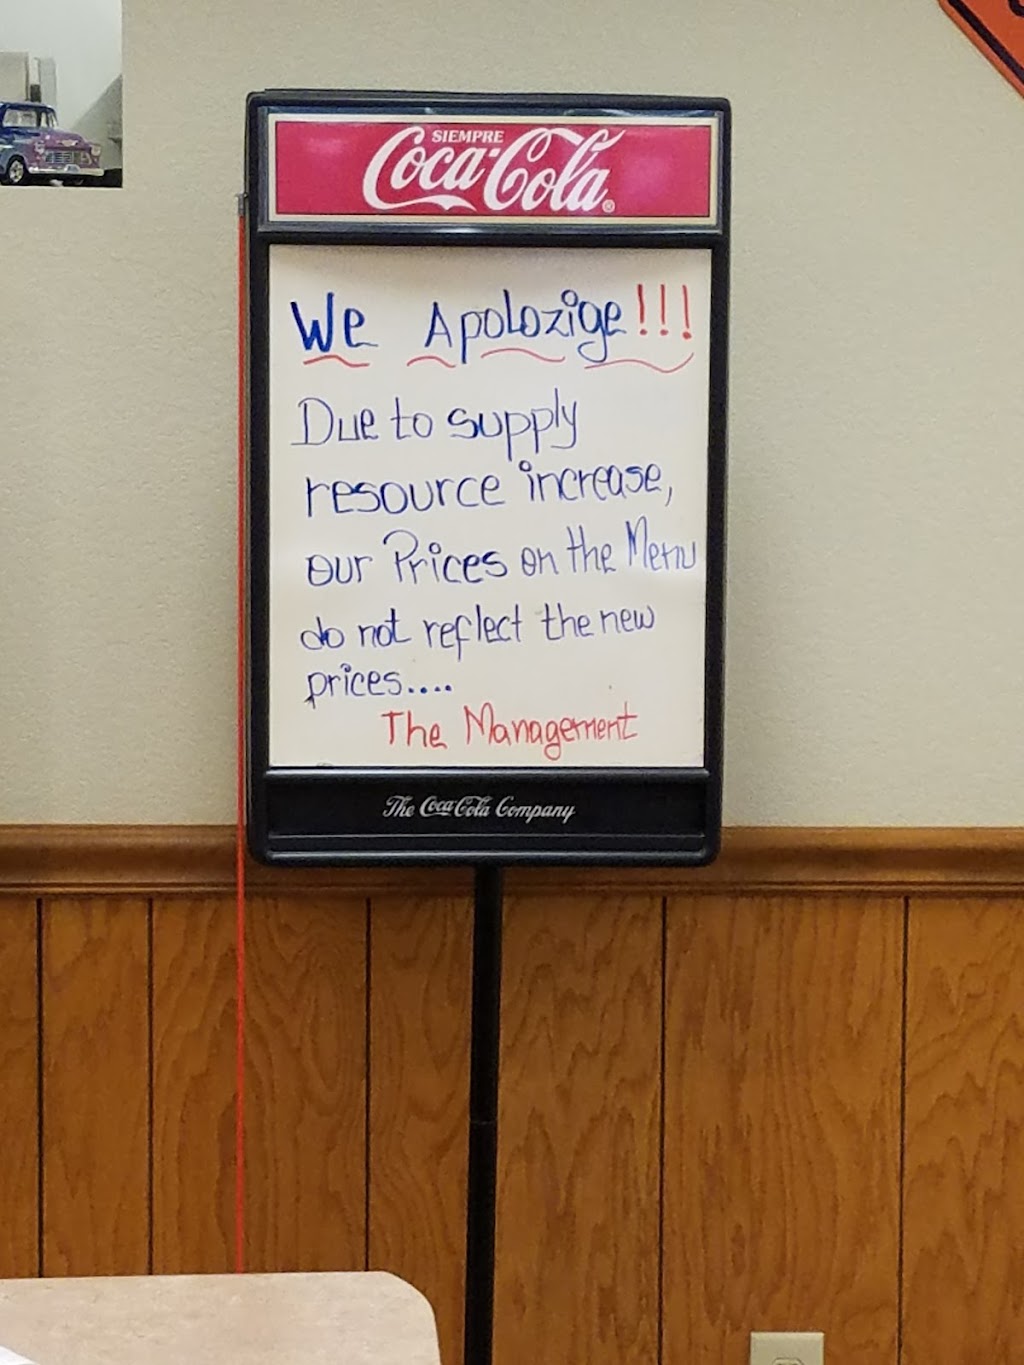 SIEMPRE
Coca-Cola®
We Apolozige!!!
Due to supply
resource increase,
our Prices on the Menu
do not reflect the new
prices....
The Management
The Coca-Cola Company